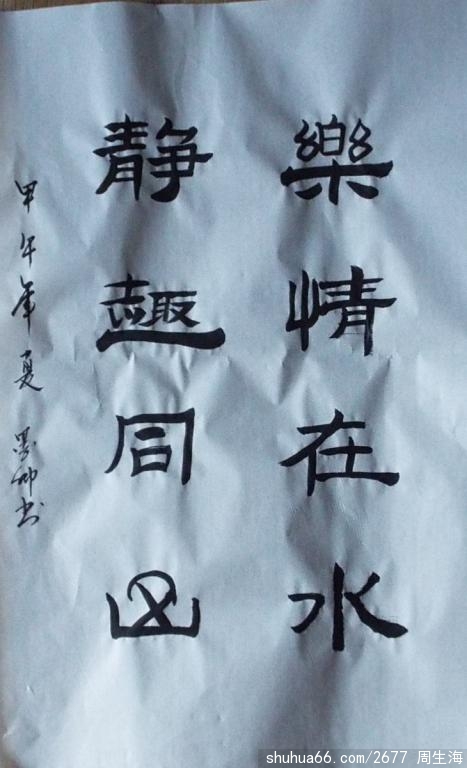 樂情在水
静趣同山
甲午年夏 墨书
shuhua66.com/2677 周生海